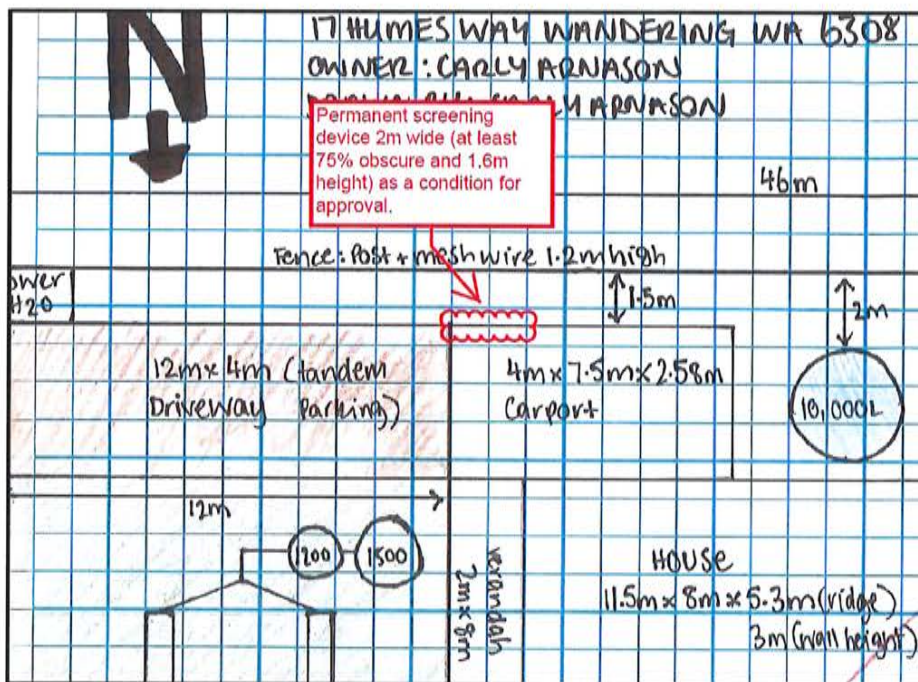 N
17 HUMES WAY WANDERING WA 6308
OWNER: CARLY ARNASON
ARNASON
Permanent screening
device 2m wide (at least
75% obscure and 1.6m
height) as a condition for
approval.
46m
Fence: Post + mesh wire 1.2m high
H20
1.5m
2m
12m x 4m (tandem
Driveway Parking)
4m x 7.5m x 2.58m
Carport
10,000L
12m
1200
1500
verandah
2m x 8m
HOUSE
11.5m x 8m x 5.3m (ridge)
3m (wall height)